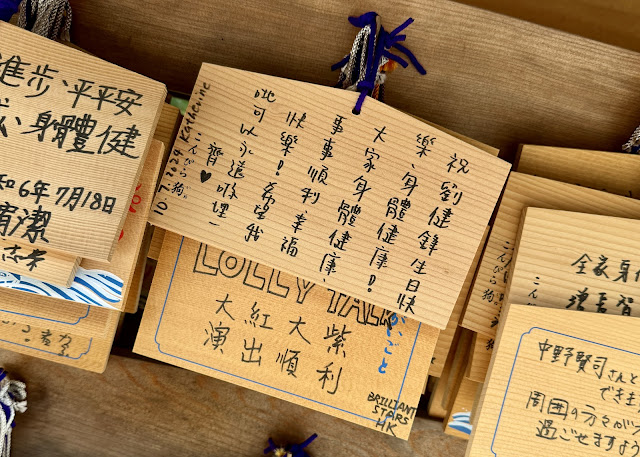 進步、平平安
身體健
和6年7月18日
潔
祝劉健鋒生日快
樂、身體健康!
大家身體健康、
事事順利、幸福
快樂!希望我
哋可以永遠埋一
齊♥
こんぴら狗。
10.7.2024 Katherine
LOLLY TALK
がいごと
大紅大紫
演出順利
BRILLIANT
STARS
HK
こんぴら狗
全家身
こんぴ
中野賢司さんと
できま
周囲の方々が
過ごせますよう